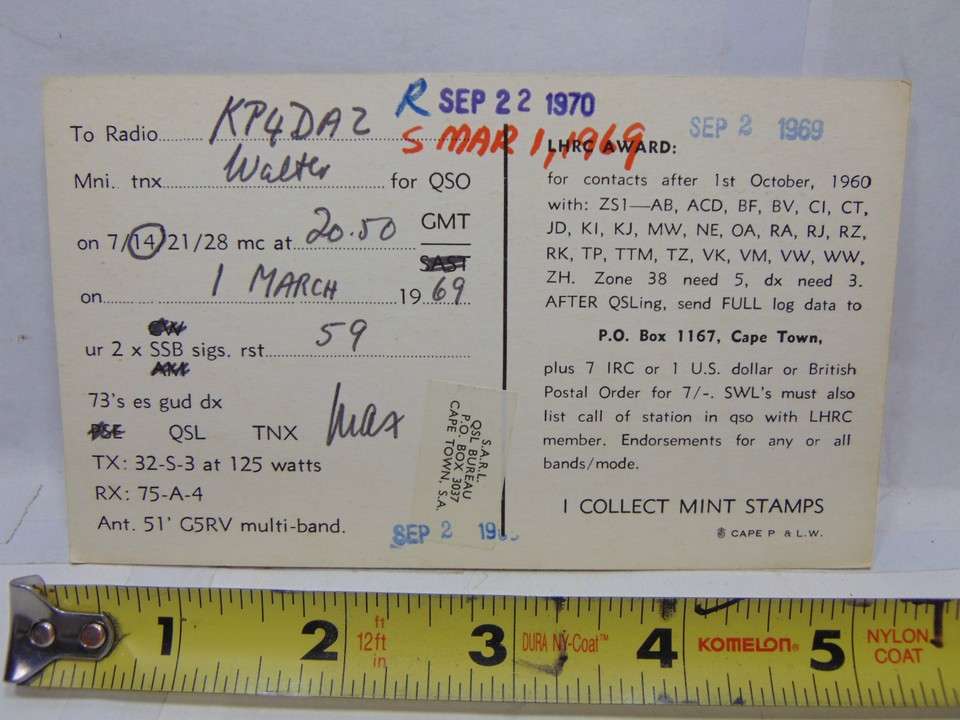 R SEP 22 1970
To Radio KP4DAZ
S MAR 1, 1969
Mni. tnx Walter for QSO
on 7/14/21/28 mc at 20.50 GMT
SAST
on 1 MARCH 1969
CW
ur 2 x SSB sigs. rst 59
AM
73's es gud dx
PSE QSL TNX Max
TX: 32-S-3 at 125 watts
RX: 75-A-4
Ant. 51' G5RV multi-band.
S.A.R.L.
QSL BUREAU
P.O. BOX 3037
CAPE TOWN, S.A.
SEP 2 19
SEP 2 1969
LHRC AWARD:
for contacts after 1st October, 1960
with: ZS1—AB, ACD, BF, BV, CI, CT,
JD, KI, KJ, MW, NE, OA, RA, RJ, RZ,
RK, TP, TTM, TZ, VK, VM, VW, WW,
ZH. Zone 38 need 5, dx need 3.
AFTER QSLing, send FULL log data to
P.O. Box 1167, Cape Town,
plus 7 IRC or 1 U.S. dollar or British
Postal Order for 7/-. SWL's must also
list call of station in qso with LHRC
member. Endorsements for any or all
bands/mode.
I COLLECT MINT STAMPS
CAPE P & L.W.
1 2 ft 12ft in 3 DURA NY-Coat™ 4 KOMELON® 5 NYLON COAT